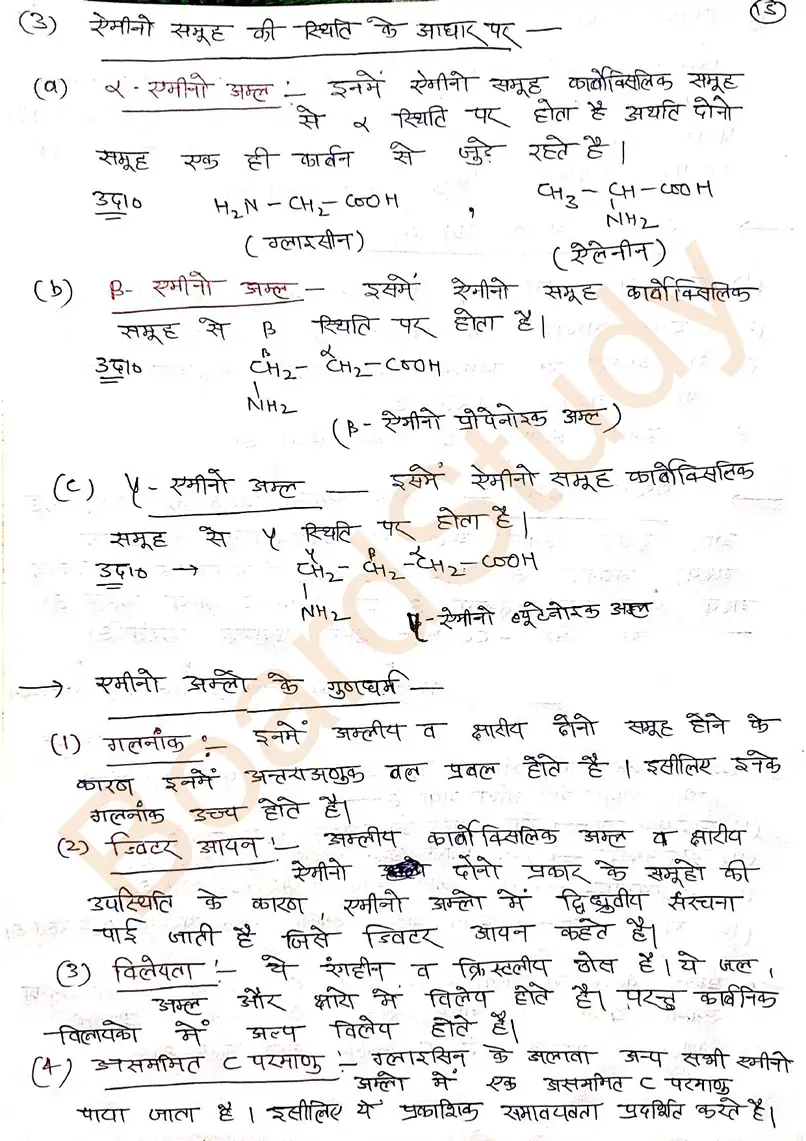 15
(3) ऐमीनो समूह की स्थिति के आधार पर —
(a) α - एमीनो अम्ल :- इनमें ऐमीनो समूह कार्बोक्सिलिक समूह
से α स्थिति पर होता है अर्थात दोनो
समूह एक ही कार्बन से जुड़े रहते है।
उदा० H2N – CH2 – COOH , CH3 – CH – COOH
NH2
(ग्लाइसीन) (ऐलेनीन)
(b) β- एमीनो अम्ल — इसमें ऐमीनो समूह कार्बोक्सिलिक
समूह से β स्थिति पर होता है।
β α
उदा० CH2 – CH2 – COOH
NH2
(β- ऐमीनो प्रोपेनोइक अम्ल)
(c) γ- एमीनो अम्ल — इसमें ऐमीनो समूह कार्बोक्सिलिक
समूह से γ स्थिति पर होता है।
γ β α
उदा० → CH2 – CH2 – CH2 – COOH
NH2 γ-ऐमीनो ब्यूटेनोइक अम्ल
→ एमीनो अम्लो के गुणधर्म —
(1) गलनांक :- इनमें अम्लीय व क्षारीय दोनो समूह होने के
कारण इनमें अन्तराअणुक बल प्रबल होते है। इसीलिए इनके
गलनांक उच्च होते है।
(2) ज्विटर आयन :- अम्लीय कार्बोक्सिलिक अम्ल व क्षारीय
ऐमीनो दोनो प्रकार के समूहो की
उपस्थिति के कारण, एमीनो अम्लो में द्विध्रुवीय संरचना
पाई जाती है जिसे ज्विटर आयन कहते है।
(3) विलेयता :- ये रंगहीन व क्रिस्टलीय ठोस है। ये जल,
अम्ल और क्षारो में विलेय होते है। परन्तु कार्बनिक
विलायको में अल्प विलेय होते है।
(4) असममित C परमाणु :- ग्लाइसिन के अलावा अन्य सभी एमीनो
अम्लो में एक असममित C परमाणु
पाया जाता है। इसीलिए ये प्रकाशिक समावयवता प्रदर्शित करते है।
BoardStudy